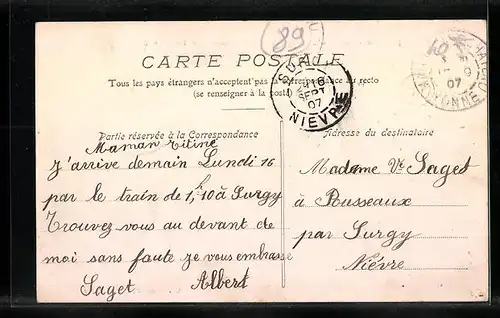 (89)
CARTE POSTALE
Tous les pays étrangers n'acceptent pas la correspondance au recto
(se renseigner à la poste)
SURGY
16
SEPT
07
NIEVRE
07
YONNE
Partie réservée à la Correspondance
Adresse du destinataire
Maman Titine
J'arrive demain Lundi 16
par le train de 1h,10 à Surgy
Trouvez vous au devant de
moi sans faute je vous embrasse
Saget Albert
Madame Ve Saget
à Pousseaux
par Surgy
Nièvre